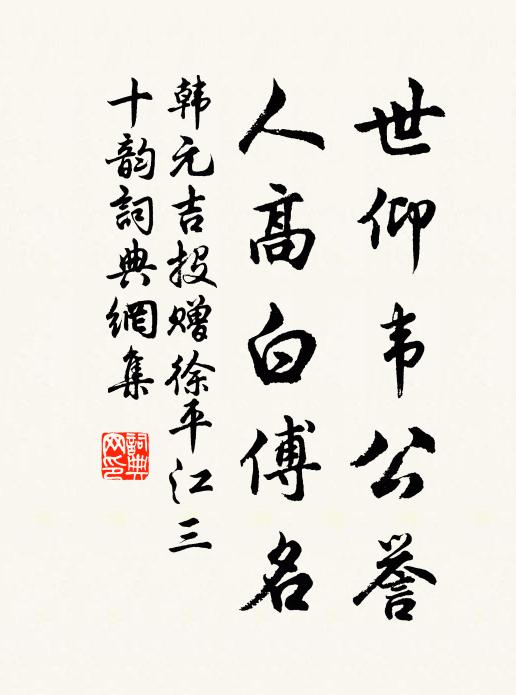 世仰韦公誉
人高白傅名
韩元吉投赠徐平江三
十韵词典網集
詞典网印